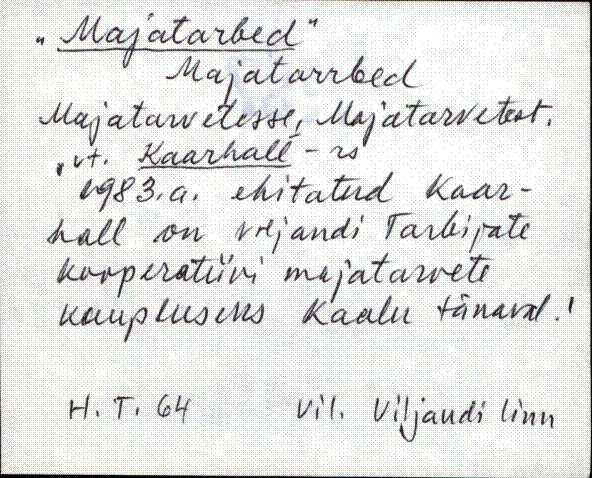 „Majatarbed"
Majatarrbed
Majatarvetesse, Majatarvetest.
vt. Kaarhall - rs
1983.a. ehitatud Kaar-
hall on Viljandi Tarbijate
kooperatiivi majatarvete
kaupluseks Kaalu tänaval.!
H. T. 64 Vil. Viljandi linn